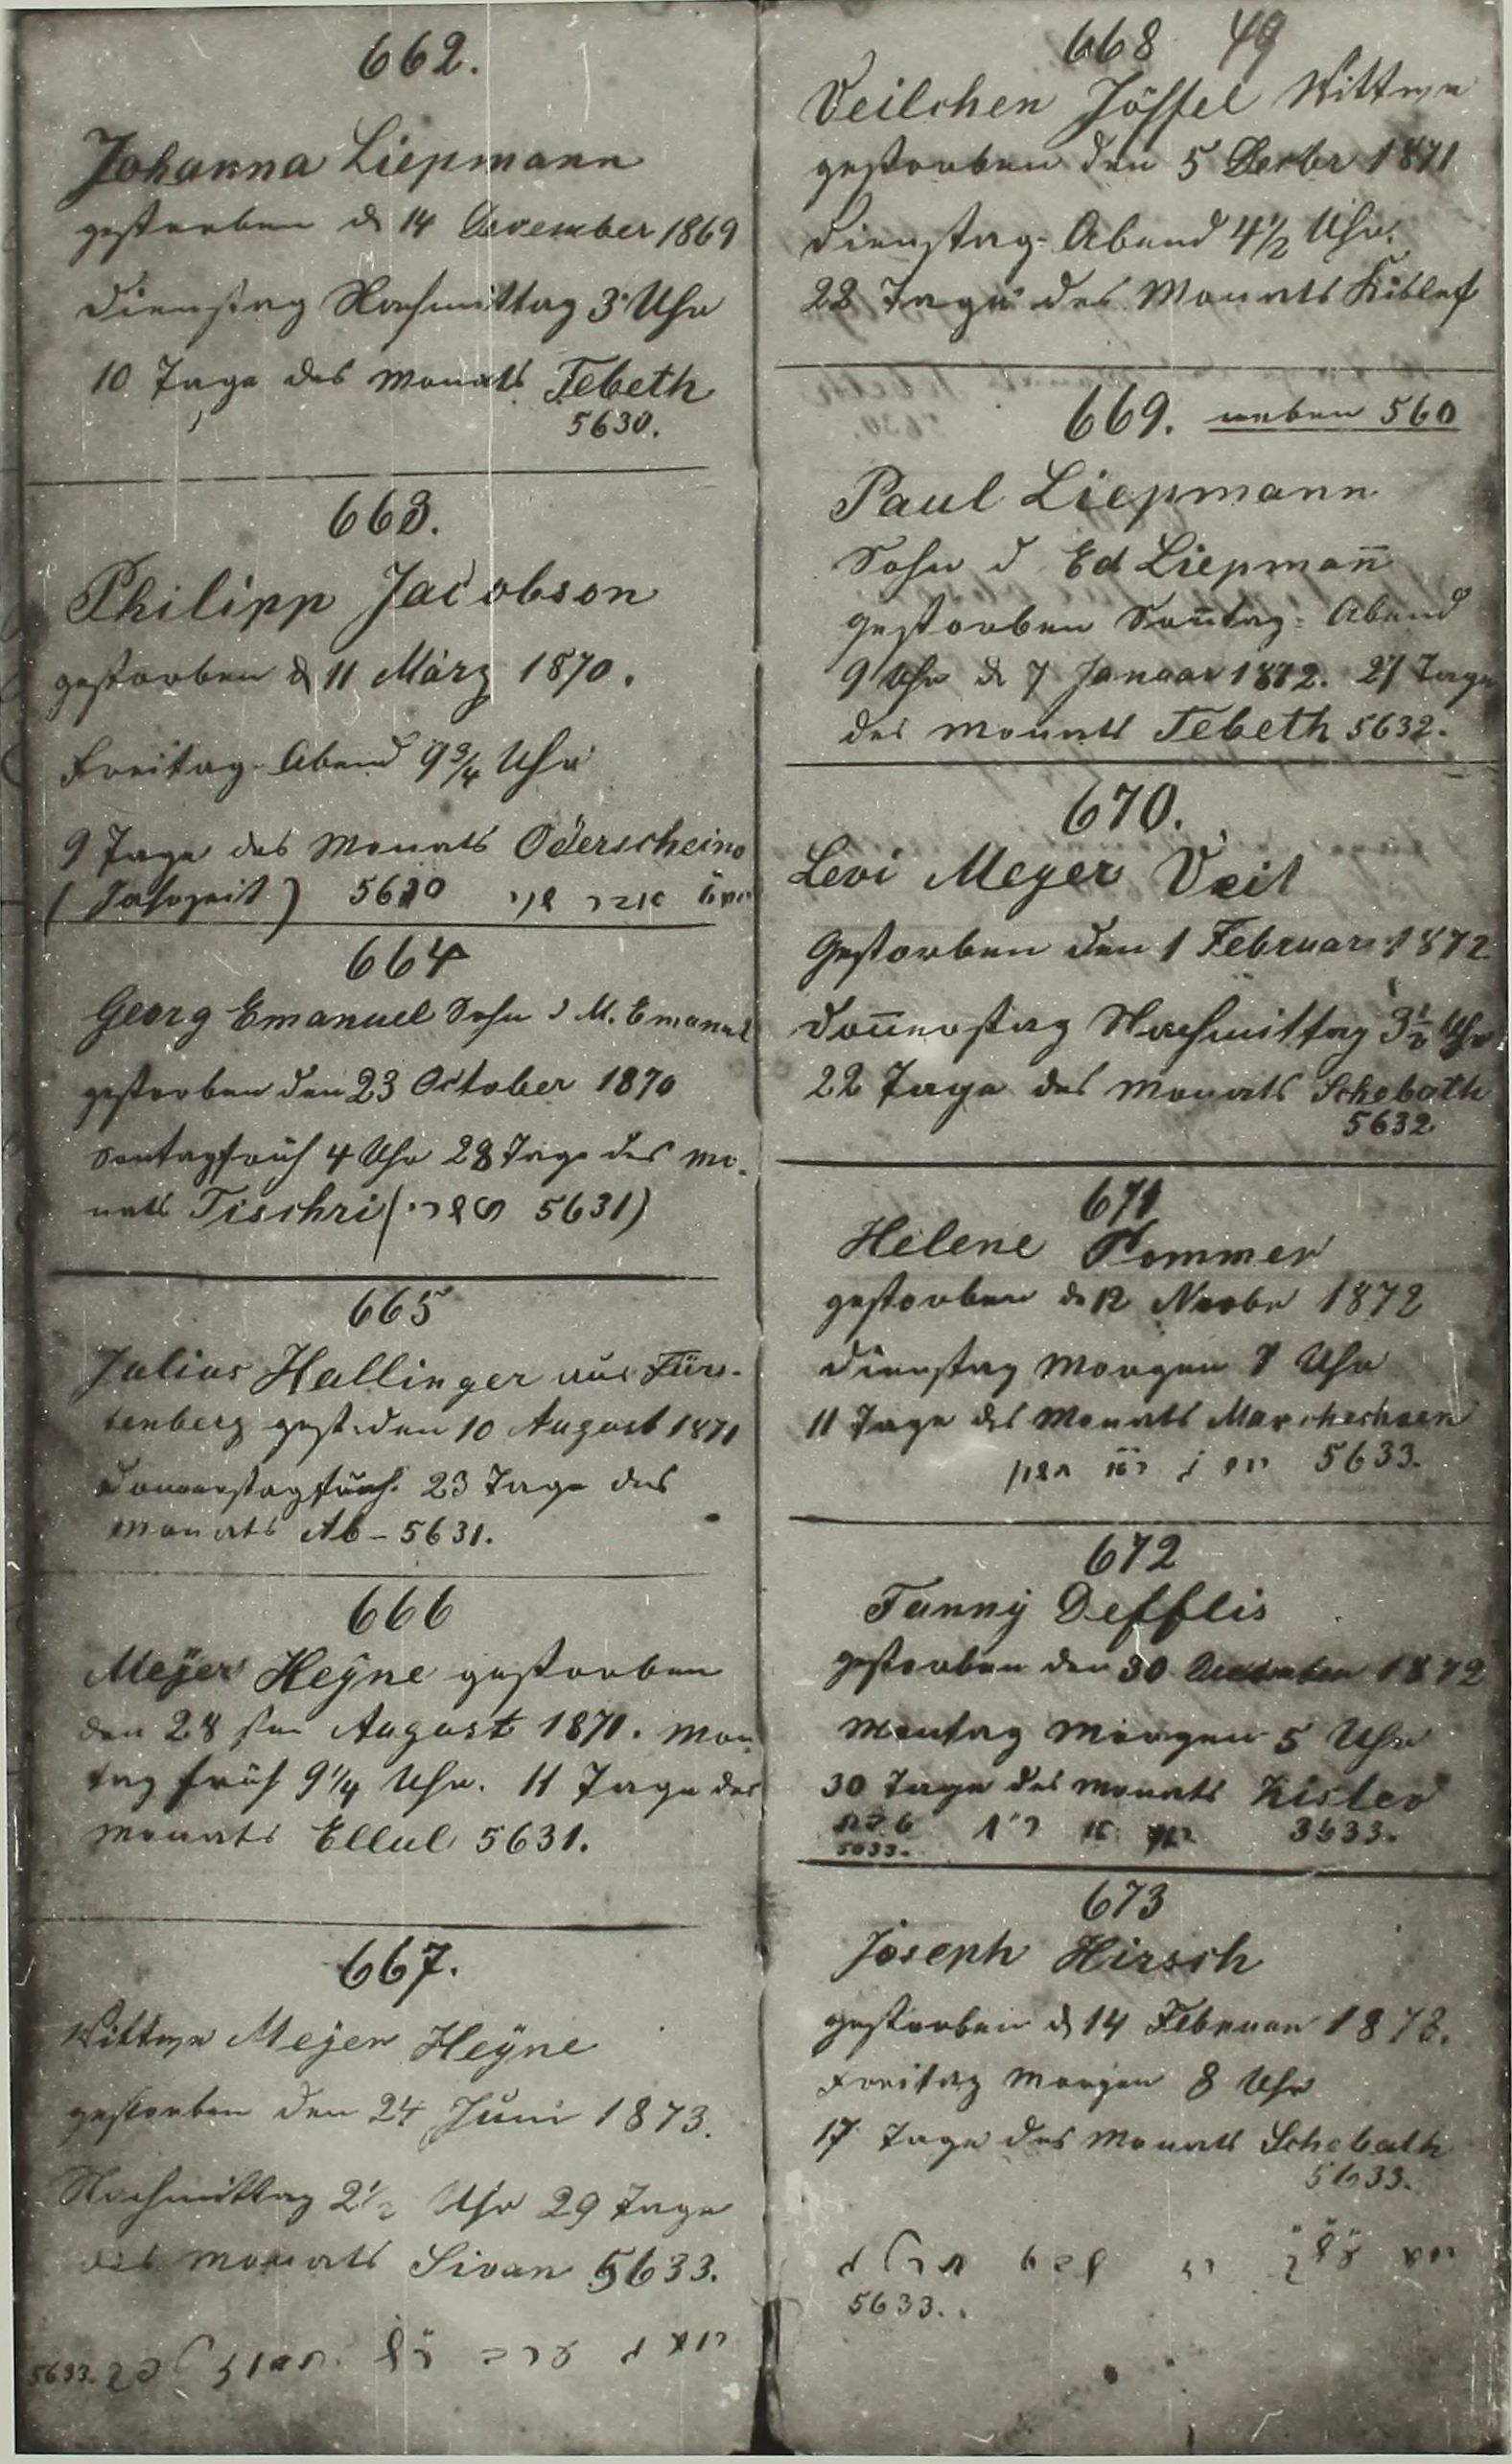 662.
Johanna Liepmann
gestorben d 14 December 1869
Dienstag Nachmittag 3 Uhr
10 Tage des Monats Tebeth
5630.
663.
Philipp Jacobson
gestorben d 11 März 1870.
Freitag-Abend 9 3/4 Uhr
9 Tage des Monats Oderscheine
(Jahrzeit) 5630
664
Georg Emanuel Sohn d M. Emanuel
gestorben den 23 October 1870
Sontag früh 4 Uhr 28 Tage des Mo-
nats Tischri (תשרי 5631)
665
Julius Hallinger aus Fürs-
tenberg gest. den 10 August 1871
Donnerstag früh. 23 Tage des
Monats Ab - 5631.
666
Meÿer Heÿne gestorben
den 28 ten August 1871. Mon-
tag früh 9 1/4 Uhr. 11 Tage des
Monats Ellul 5631.
667.
Wittwe Meÿer Heÿne
gestorben den 24 Juni 1873.
Nachmittag 2 1/2 Uhr 29 Tage
des Monats Sivan 5633.
5633.
668 49
Veilchen Jöffel Wittwe
gestorben den 5 Decbr 1871
Dienstag-Abend 4 1/2 Uhr.
22 Tage des Monats Kislef
669. neben 560
Paul Liepmann
Sohn d Ed Liepman̄
gestorben Son̄tag-Abend
9 Uhr d 7 Januar 1872. 27 Tage
des Monats Tebeth 5632.
670.
Levi Meyer Veit
Gestorben den 1 Februar 1872
Don̄erstag Nachmittag 3 1/2 Uhr
22 Tage des Monats Schebath
5632.
671
Helene Pommer
gestorben d 12 Novbr 1872
Dienstag Morgen Uhr
11 Tage des Monats Marcheschwen
5633.
672
Fanny Defflis
gestorben den 30 December 1872
Montag Morgen 5 Uhr
30 Tage des Monats Kislev
5633.
5633.
673
Joseph Hirsch
gestorben d 14 Februar 1873.
Freitag Morgen 8 Uhr
17 Tage des Monats Schebath
5633.
5633.